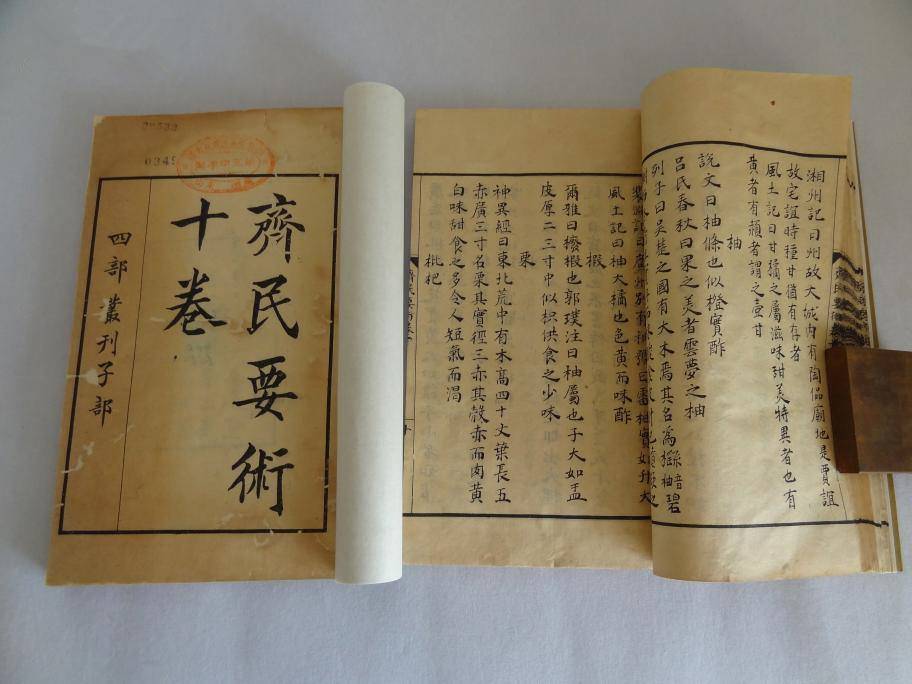 齊民要術
十卷
四部叢刊子部
湘州記曰州故大城內有陶侃廟地是賈誼
故宅誼時種甘猶有存者
風土記曰甘橘之屬滋味甜美特異者也有
黃者有赬者謂之壺甘
柚
說文曰柚條也似橙實酢
呂氏春秋曰果之美者雲夢之柚
列子曰吳楚之國有大木焉其名為櫾音柚碧
風土記曰柚大橘也色黃而味酢
椵
爾雅曰櫠椵也郭璞注曰柚屬也子大如盂
皮厚二三寸中似枳供食之少味
栗
神異經曰東北荒中有木高四十丈葉長五
赤廣三寸名栗其實徑三赤其殼赤而肉黃
白味甜食之多令人短氣而渴
枇杷